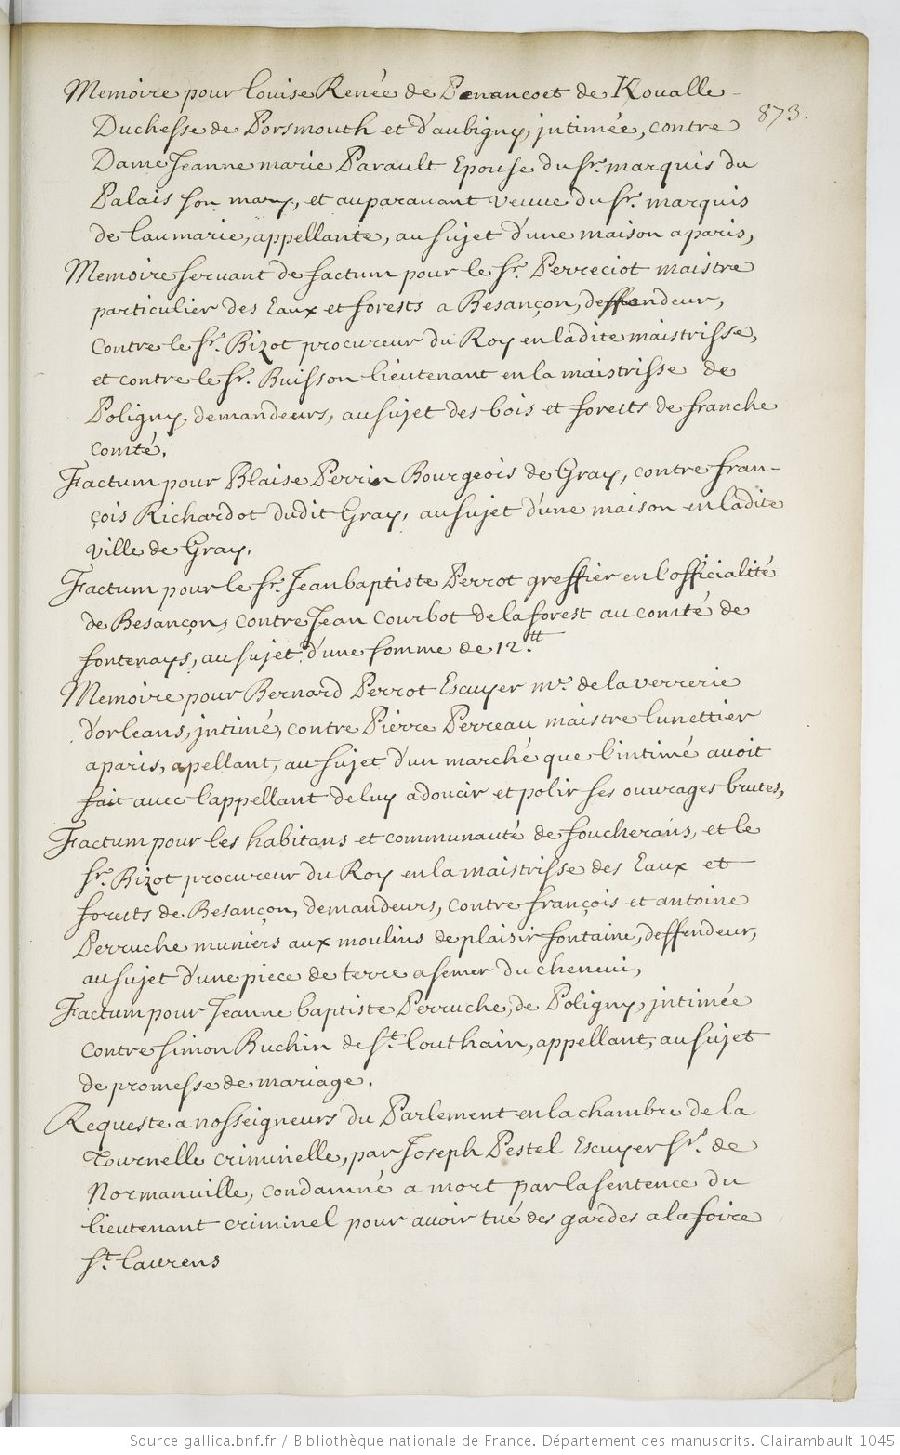 Memoire pour Louise Renée de Penancoet de Kovalle
873.
Duchesse de Porsmouth et d'aubigny, intimée, contre
Dame Jeanne marie Parault Epouse du Sr. marquis du
Palais son mary, et auparavant veuve du Sr. marquis
de Laumarie, appellante, au sujet d'une maison a paris,
Memoire servant de factum pour le Sr. Perreciot maistre
particulier des Eaux et forests a Besançon, deffendeur,
contre le Sr. Bizot procureur du Roy en ladite maistrisse,
et contre le Sr. Buisson lieutenant en la maistrisse de
Poligny, demandeurs, au sujet des bois et forests de franche
comté.
Factum pour Blaise Perrin Bourgeois de Gray, contre fran-
çois Richardot dudit Gray, au sujet d'une maison en ladite
ville de Gray.
Factum pour le Sr. Jean baptiste Perrot greffier en l'officialité
de Besançon, contre Jean Courbot de la forest au comté de
fontenays, au sujet d'une somme de 12.tt
Memoire pour Bernard Perrot Escuyer mr. de la verrerie
d'orleans, intimé, contre Pierre Perreau maistre lunettier
a paris, apellant, au sujet d'un marché que l'intimé avoit
fait avec l'appellant de luy adoucir et polir ses ouvrages brutes,
Factum pour les habitans et communauté de foucherans, et le
Sr. Bizot procureur du Roy en la maistrisse des Eaux et
forests de Besançon, demandeurs, contre françois et antoine
Perruche muniers aux moulins de plaisir fontaine, deffendeur,
au sujet d'une piece de terre a semer du chenevi,
Factum pour Jeanne baptiste Perruche, de Poligny, intimée
contre simon Ruchin de St. Louthain, appellant, au sujet
de promesse de mariage.
Requeste a nosseigneurs du Parlement en la chambre de la
Tournelle criminelle, par Joseph Pestel Escuyer Sr. de
Normanville, condamné a mort par la sentence du
lieutenant criminel pour avoir tué des gardes a la foire
St. Laurens
Source gallica.bnf.fr / Bibliothèque nationale de France. Département des manuscrits. Clairambault 1045